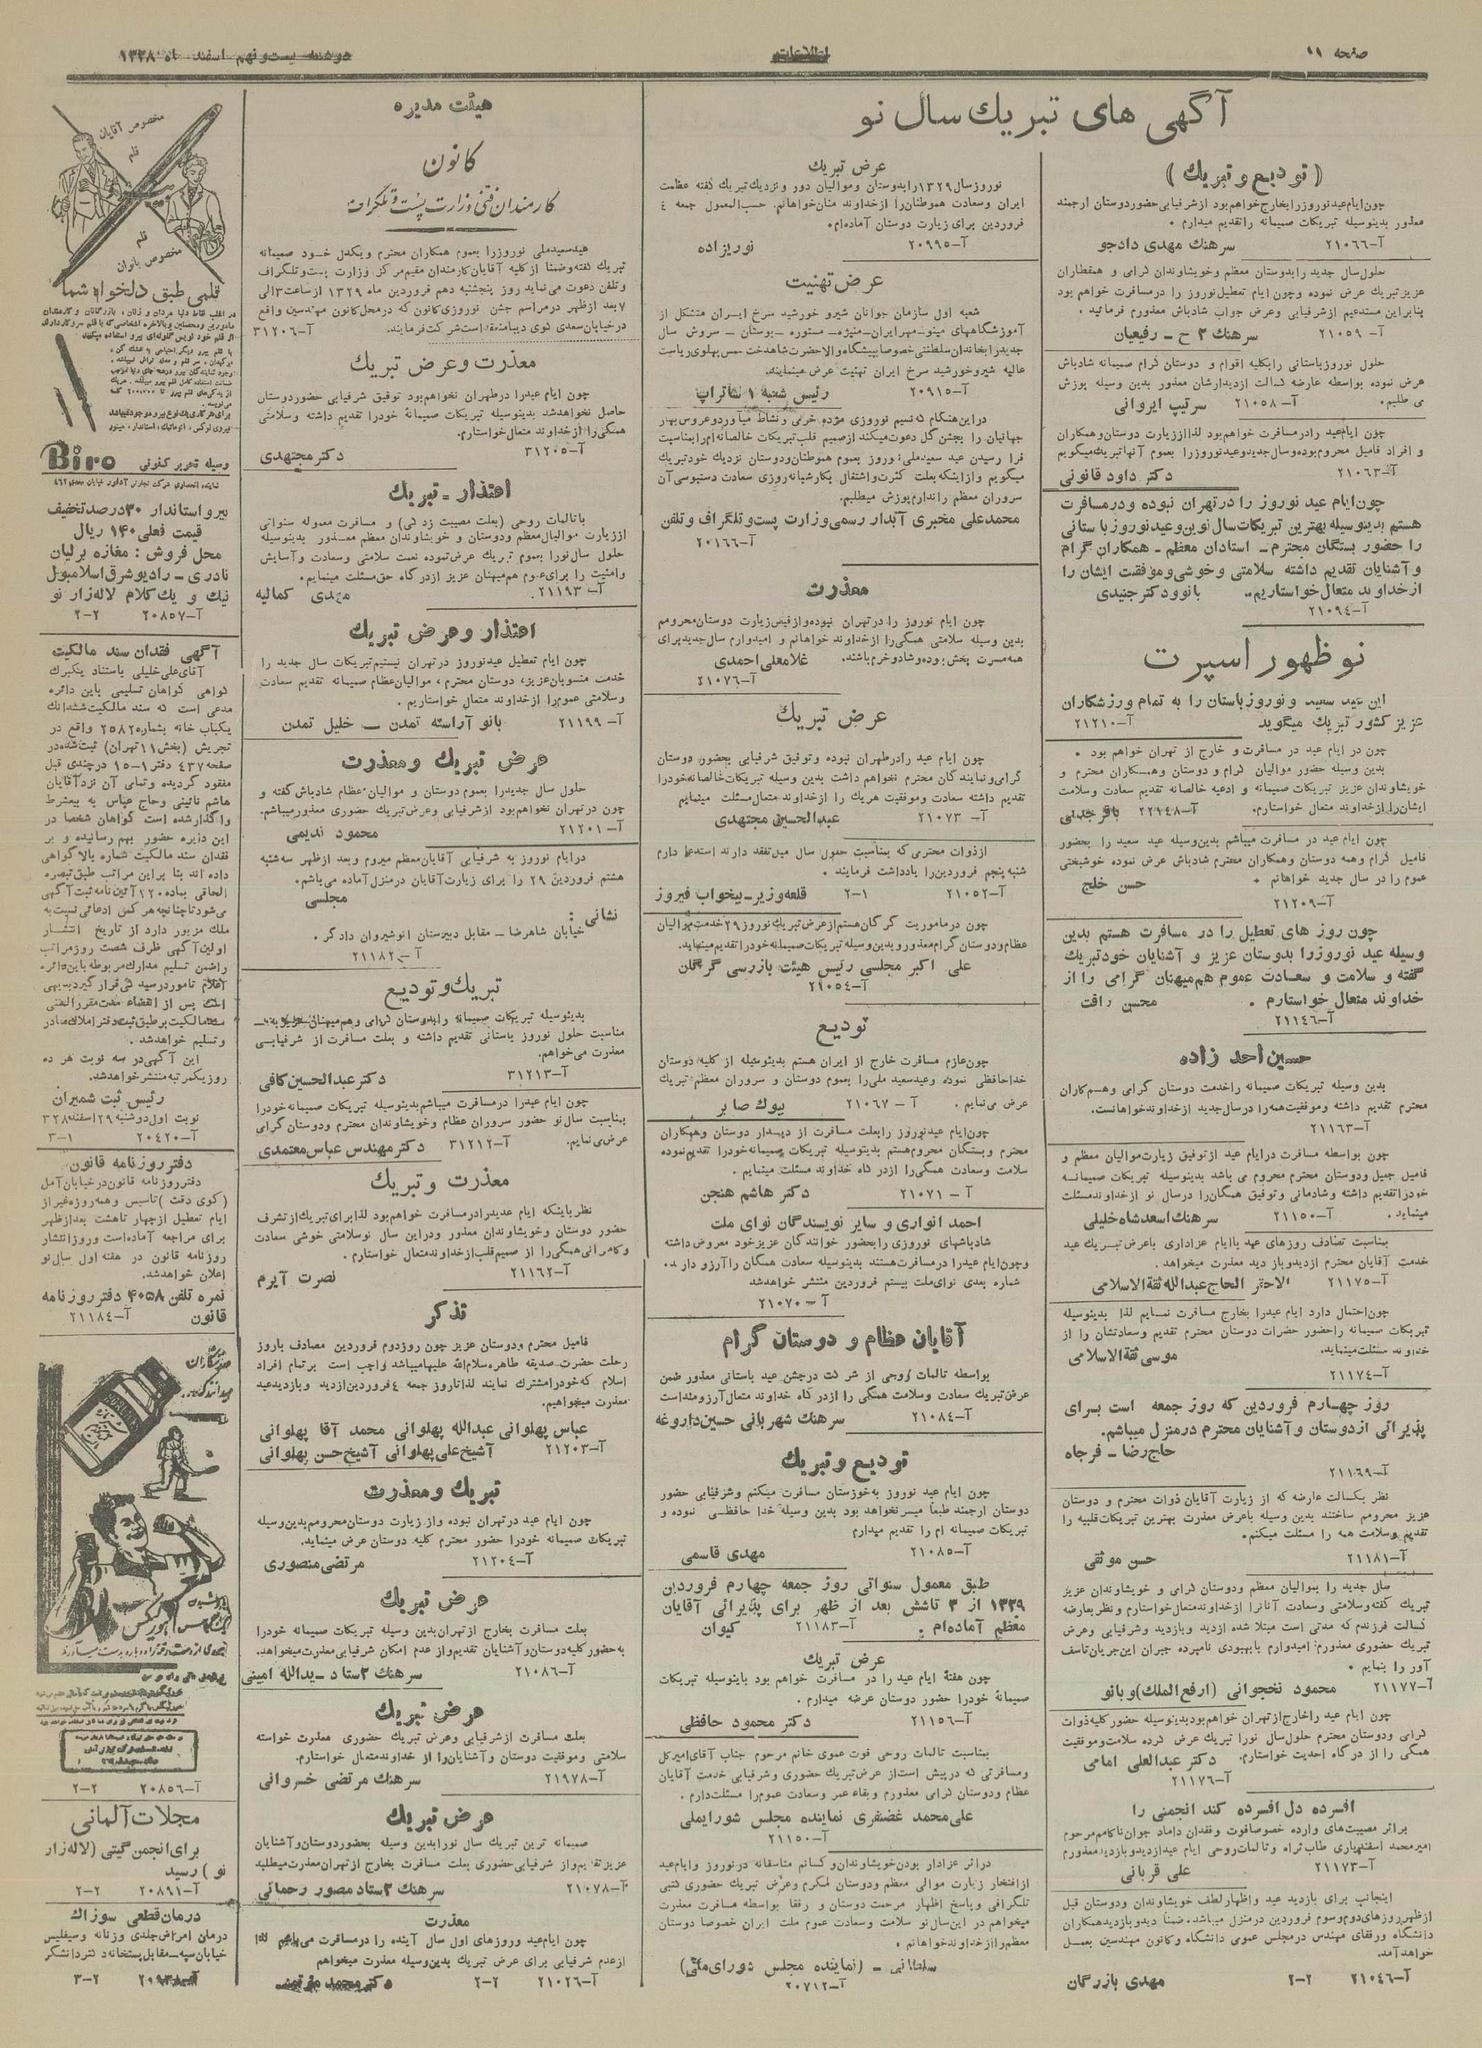 صفحه ۱۱
اطلاعات
دوشنبه بیست و نهم اسفند ماه ۱۳۲۸
آگهی های تبریك سال نو
(تودیع و تبریك)
چون ایام عید نوروز را بخارج خواهم بود از شرفیابی حضور دوستان ارجمند
معذور بدینوسیله تبریکات صمیمانه را تقدیم میدارم.
آ-۲۱۰۶۶ سرهنك مهدی دادجو
حلول سال جدید را بدوستان معظم وخویشاوندان گرامی و همقطاران
عزیز تبریك عرض نموده وچون ایام تعطیل نوروز را در مسافرت خواهم بود
بنابراین مستدعیم از شرفیابی وعرض جواب شادباش معذورم فرمائید.
آ-۲۱۰۵۹ سرهنك ۲ ح - رفیعیان
حلول نوروز باستانی را بکلیه اقوام و دوستان گرام صمیمانه شادباش
عرض نموده بواسطه عارضه کسالت از دیدارشان معذور بدین وسیله پوزش
می طلبم. آ-۲۱۰۵۸ سرتیپ ایروانی
چون ایام عید را در مسافرت خواهم بود لذا از زیارت دوستان و همکاران
و افراد فامیل محروم بوده و سال جدید و عید نوروز را بعموم آنها تبریك میگویم
آ-۲۱۰۶۳ دکتر داود قانونی
چون ایام عید نوروز را در تهران نبوده و در مسافرت
هستم بدینوسیله بهترین تبریکات سال نوین و عید نوروز باستانی
را حضور بستگان محترم - استادان معظم - همکاران گرام
و آشنایان تقدیم داشته سلامتی و خوشی و موفقت ایشان را
از خداوند متعال خواستاریم. بانو و دکتر جنیدی
آ-۲۱۰۹۴
نو ظهور اسپرت
این عید سعید و نوروز باستان را به تمام ورزشکاران
عزیز کشور تبریك میگوید آ-۲۱۲۱۰
چون در ایام عید در مسافرت و خارج از تهران خواهم بود.
بدین وسیله حضور موالیان گرام و دوستان وهمسکاران محترم و
خویشاوندان عزیز تبریکات صمیمانه و ادعیه خالصانه تقدیم سعادت وسلامت
ایشان را از خداوند متعال خواستارم. آ-۲۲۹۴۸
چون ایام عید در مسافرت میباشم بدین وسیله عید سعید را بحضور
فامیل گرام وهمه دوستان وهمکاران محترم شادباش عرض نموده خوشبختی
عموم را در سال جدید خواهانم. حسن خلج
آ-۲۱۲۰۹
چون روز های تعطیل را در مسافرت هستم بدین
وسیله عید نوروز را بدوستان عزیز و آشنایان خود تبریك
گفته و سلامت و سعادت عموم هم میهنان گرامی را از
خداوند متعال خواستارم. محسن رافت
آ-۲۱۱۴۶
حسین احد زاده
بدین وسیله تبریکات صمیمانه را خدمت دوستان گرامی وهمکاران
محترم تقدیم داشته وموفقیت همه را در سال جدید از خداوند خواهانست.
آ-۲۱۱۶۳
چون بواسطه مسافرت در ایام عید از توفیق زیارت موالیان معظم و
فامیل جمیل و دوستان محترم محروم می باشد بدینوسیله تبریکات صمیمانه
خود را تقدیم داشته وشادمانی وتوفیق همگان را در سال نو از خداوند مسئلت
مینماید. آ-۲۱۱۵۰ سرهنك اسعد شاه خلیلی
بمناسبت تصادف روزهای عید با ایام عزاداری با عرض تبریك عید
خدمت آقایان محترم از دید و باز دید معذرت میخواهد.
آ-۲۱۱۷۵ الاحقر الحاج عبدالله ثقة الاسلامی
چون احتمال دارد ایام عید را بخارج مسافرت نمایم لذا بدینوسیله
تبریکات صمیمانه را حضور حضرات دوستان محترم تقدیم وسعادتشان را از
خداوند مسئلت مینماید. موسی ثقة الاسلامی
آ-۲۱۱۷۴
روز چهارم فروردین که روز جمعه است برای
پذیرائی از دوستان و آشنایان محترم در منزل میباشم.
حاج رضا - فرجاه
آ-۲۱۱۶۹
نظر بکسالت عارضه که از زیارت آقایان ذوات محترم و دوستان
عزیز محرومم ساختند بدین وسیله با عرض معذرت بهترین تبریکات قلبیه را
تقدیم وسلامت همه را مسئلت میکنم.
آ-۲۱۱۸۱ حسن موثقی
سال جدید را بموالیان معظم ودوستان گرامی و خویشاوندان عزیز
تبریك گفته وسلامتی وسعادت آنانرا از خداوند متعال خواستارم و نظر بعارضه
کسالت فرزندم که مدتی است مبتلا شده از دید وبازدید وشرفیابی وعرض
تبریك حضوری معذورم؛ امیدوارم با بهبودی نامبرده جبران این جریان تاسف
آور را بنمایم.
آ-۲۱۱۷۷ محمود نخجوانی (ارفع الملك) و بانو
چون ایام عید را خارج از تهران خواهم بود بدینوسیله حضور کلیه ذوات
گرامی ودوستان محترم حلول سال نورا تبریك عرض کرده سلامت وموفقیت
همگی را از درگاه احدیت خواستارم. دکتر عبدالعلی امامی
آ-۲۱۱۷۶
افسرده دل افسرده کند انجمنی را
بر اثر مصیبت‌های وارده خصوصا فوت و فقدان داماد جوان ناکامم مرحوم
امیر محمد اسفندیاری طاب ثراه و تالمات روحی ایام عید از دید و بازدید معذورم
آ-۲۱۱۷۳ علی قربانی
اینجانب برای بازدید عید واظهار لطف خویشاوندان ودوستان قبل
از ظهر روزهای دوم و سوم فروردین در منزل میباشد. ضمنا دید و بازدید همکاران
دانشگاه ورفقای مهندس در مجلس عمومی دانشگاه و کانون مهندسین بعمل
خواهد آمد.
آ-۲۱۰۴۶ ۲-۲ مهدی بازرگان
عرض تبریك
نوروز سال ۱۳۲۹ را بدوستان وموالیان دور و نزدیك تبریك گفته عظمت
ایران وسعادت هموطنان را از خداوند منان خواهانم. حسب المعمول جمعه ۴
فروردین برای زیارت دوستان آماده ام.
آ-۲۰۹۹۵ نوریزاده
عرض تهنیت
شعبه اول سازمان جوانان شیر و خورشید سرخ ایران متشکل از
آموزشگاههای مینو-مهر ایران-منیژه- مستوره -بوستان - سروش سال
جدید را بخاندان سلطنتی خصوصا پیشگاه والاحضرت شاهدخت شمس پهلوی ریاست
عالیه شیر و خورشید سرخ ایران تهنیت عرض مینماید.
آ-۲۰۹۱۵ رئیس شعبه ۱ ساتراپ
در این هنگام که نسیم نوروزی مژده خرمی و نشاط میآورد و عروس بهار
جهانیان را بجشن گل دعوت میکند از صمیم قلب تبریکات خالصانه ام را بمناسبت
فرا رسیدن عید سعید ملی نوروز بعموم هموطنان ودوستان نزدیك خود تبریك
میگویم و از اینکه بعلت کثرت واشتغال بکار شبانه روزی سعادت دستبوسی آن
سروران معظم را ندارم پوزش میطلبم.
محمد علی مخبری آبدار رسمی وزارت پست و تلگراف و تلفن
آ-۲۰۱۶۶
معذرت
چون ایام نوروز را در تهران نبوده و از فیض زیارت دوستان محرومم
بدین وسیله سلامتی همگی را از خداوند خواهانم و امیدوارم سال جدید برای
همه مسرت بخش بوده و شاد و خرم باشند. غلامعلی احمدی
آ-۲۱۰۷۶
عرض تبریك
چون ایام عید را در طهران نبوده وتوفیق شرفیابی بحضور دوستان
گرامی و نمایندگان محترم نخواهم داشت بدین وسیله تبریکات خالصانه خود را
تقدیم داشته سعادت وموفقیت هریك را از خداوند متعال مسئلت مینمایم
آ- ۲۱۰۷۳ عبدالحسین مجتهدی
از ذوات محترمی که بمناسبت حلول سال میل تفقد دارند استدعا دارم
شنبه پنجم فروردین را یادداشت فرمایند.
آ-۲۱۰۵۲ ۲-۱ قلعه وزیر-بیخواب فیروز
چون در ماموریت گرگان هستم از عرض تبریك نوروز ۲۹ خدمت موالیان
عظام و دوستان گرام معذور و بدین وسیله تبریکات صمیمانه خود را تقدیم مینماید.
علی اکبر مجلسی رئیس هیئت بازرسی گرگان
آ-۲۱۰۵۴
تودیع
چون عازم مسافرت خارج از ایران هستم بدینوسیله از کلیه دوستان
خداحافظی نموده وعید سعید ملی را بعموم دوستان و سروران معظم تبریك
عرض می نمایم. آ - ۲۱۰۶۷ بیوك صابر
چون ایام عید نوروز را بعلت مسافرت از دیدار دوستان وهمکاران
محترم وبستگان محروم هستم بدینوسیله تبریکات صمیمانه خود را تقدیم نموده
سلامت وسعادت همگی را از درگاه خداوند مسئلت مینمایم.
آ - ۲۱۰۷۱ دکتر هاشم هنجن
احمد انواری و سایر نویسندگان نوای ملت
شادباشهای نوروزی را بحضور خوانندگان عزیز خود معروض داشته
وچون ایام عید را در مسافرت هستند بدینوسیله سعادت همگان را آرزو دارند.
شماره بعدی نوای ملت بیستم فروردین منتشر خواهد شد
آ-۲۱۰۷۰
آقایان عظام و دوستان گرام
بواسطه تالمات روحی از شرکت در جشن عید باستانی معذور ضمن
عرض تبریك سعادت وسلامت همگی را از درگاه خداوند متعال آرزومند است
آ-۲۱۰۸۴ سرهنك شهربانی حسین داروغه
تودیع و تبریك
چون ایام عید نوروز به خوزستان مسافرت میکنم وشرفیابی حضور
دوستان ارجمند طبعا میسر نخواهد بود بدین وسیله خدا حافظی نموده و
تبریکات صمیمانه ام را تقدیم میدارم
آ-۲۱۰۸۵ مهدی قاسمی
طبق معمول سنواتی روز جمعه چهارم فروردین
۱۳۲۹ از ۳ تاشش بعد از ظهر برای پذیرائی آقایان
معظم آماده ام. آ-۲۱۱۸۳ کیوان
عرض تبریك
چون هفتهٔ ایام عید را در مسافرت خواهم بود باینوسیله تبریکات
صمیمانهٔ خود را حضور دوستان عرضه میدارم.
آ-۲۱۱۵۶ دکتر محمود حافظی
بمناسبت تالمات روحی فوت عموی خانم مرحوم جناب آقای امیر کل
ومسافرتی که در پیش است از عرض تبریك حضوری وشرفیابی خدمت آقایان
عظام ودوستان گرامی معذورم وبقاء عمر وسعادت عموم را مسئلت دارم.
علی محمد غضنفری نماینده مجلس شورایملی
آ-۲۱۱۵۰
در اثر عزادار بودن خویشاوندان و کسانم متاسفانه در نوروز و ایام عید
از افتخار زیارت موالی معظم ودوستان مکرم وعرض تبریك حضوری کتبی
تلگرافی وپاسخ اظهار مرحمت دوستان و رفقا بواسطه مسافرت معذرت
میخواهم در این سال نو سلامت وسعادت عموم ملت ایران خصوصا دوستان
معظم را از خداوند خواهانم.
سلطانی - (نماینده مجلس شورای ملی)
آ-۲۰۷۱۲
هیئت مدیره
کانون
کارمندان فنی وزارت پست و تلگراف
عید سعید ملی نوروز را بعموم همکاران محترم ویکدل خود صمیمانه
تبریك گفته وضمنا از کلیه آقایان کارمندان مقیم مرکز وزارت پست و تلگراف
وتلفن دعوت می نماید روز پنجشنبه دهم فروردین ماه ۱۳۲۹ از ساعت ۳ الی
۷ بعد از ظهر در مراسم جشن نوروزی کانون که در محل کانون مهندسین واقع
در خیابان سعدی کوی دیبا منعقد است شرکت فرمایند. آ-۳۱۲۰۶
معذرت و عرض تبریك
چون ایام عید را در طهران نخواهم بود توفیق شرفیابی حضور دوستان
حاصل نخواهد شد بدینوسیله تبریکات صمیمانهٔ خود را تقدیم داشته وسلامتی
همگی را از خداوند متعال خواستارم.
آ-۳۱۲۰۵ دکتر مجتهدی
اعتذار - تبریك
با تالمات روحی (بعلت مصیبت زدگی) و مسافرت معموله سنواتی
از زیارت موالیان معظم ودوستان و خویشاوندان معظم معذور بدینوسیله
حلول سال نو را بعموم تبریك عرض نموده نعمت سلامتی وسعادت و آسایش
وامنیت را برای عموم هم میهنان عزیز از درگاه حق مسئلت مینمایم.
آ-۲۱۱۹۳ مهدی کمالیه
اعتذار و عرض تبریك
چون ایام تعطیل عید نوروز در تهران نیستیم تبریکات سال جدید را
خدمت منسوبان عزیز، دوستان محترم، موالیان عظام صمیمانه تقدیم سعادت
وسلامتی عموم را از خداوند متعال خواستاریم.
آ-۲۱۱۹۹ بانو آراسته تمدن - خلیل تمدن
عرض تبریك و معذرت
حلول سال جدید را بعموم دوستان و موالیان عظام شادباش گفته و
چون در تهران نخواهم بود از شرفیابی وعرض تبریك حضوری معذور میباشم.
آ-۲۱۲۰۱ محمود ندیمی
در ایام نوروز به شرفیابی آقایان معظم میروم وبعد از ظهر سه شنبه
هشتم فروردین ۲۹ را برای زیارت آقایان در منزل آماده می باشم.
مجلسی
نشانی: خیابان شاهرضا - مقابل دبیرستان انوشیروان دادگر.
آ-۲۱۱۸۲
تبریك و تودیع
بدینوسیله تبریکات صمیمانه را بدوستان گرامی وهم میهنان عزیز به
مناسبت حلول نوروز باستانی تقدیم داشته و بعلت مسافرت از شرفیابی
معذرت می خواهم.
آ-۳۱۲۱۳ دکتر عبدالحسین کافی
چون ایام عید را در مسافرت میباشم بدینوسیله تبریکات صمیمانه خود را
بمناسبت سال نو حضور سروران عظام وخویشاوندان محترم ودوستان گرامی
عرض می نمایم. آ-۳۱۲۱۲ دکتر مهندس عباس معتمدی
معذرت و تبریك
نظر باینکه ایام عید را در مسافرت خواهم بود لذا برای تبریك از تشرف
حضور دوستان وخویشاوندان معذور ودر این سال نو سلامتی خوشی سعادت
و کامرانی همگی را از صمیم قلب از خداوند متعال خواستارم.
آ-۲۱۱۶۲ نصرت آیرم
تذکر
فامیل محترم ودوستان عزیز چون روز دوم فروردین مصادف با روز
رحلت حضرت صدیقه طاهره سلام الله علیها میباشد واجب است بر تمام افراد
اسلام که خود را مشترك نمایند لذا تا روز جمعه ۴ فروردین از دید و بازدید عید
معذرت میخواهیم.
عباس پهلوانی عبدالله پهلوانی محمد آقا پهلوانی
آ-۲۱۲۰۳ آشیخ علی پهلوانی آشیخ حسن پهلوانی
تبریك و معذرت
چون ایام عید در تهران نبوده و از زیارت دوستان محرومم بدین وسیله
تبریکات صمیمانه خود را حضور محترم کلیه دوستان عرض مینماید.
آ-۲۱۲۰۴ مرتضی منصوری
عرض تبریك
بعلت مسافرت بخارج از تهران بدین وسیله تبریکات صمیمانه خود را
به حضور کلیه دوستان و آشنایان تقدیم و از عدم امکان شرفیابی معذرت میخواهد.
آ-۲۱۰۸۶ سرهنك ۲ ستاد - یدالله امینی
عرض تبریك
بعلت مسافرت از شرفیابی وعرض تبریك حضوری معذرت خواسته
سلامتی وموفقیت دوستان و آشنایان را از خداوند متعال خواستارم.
آ-۲۱۹۷۸ سرهنك مرتضی خسروانی
عرض تبریك
صمیمانه ترین تبریك سال نو را بدین وسیله بحضور دوستان و آشنایان
عزیز تقدیم و از شرفیابی حضوری بعلت مسافرت بخارج از تهران معذرت میطلبد
آ-۲۱۰۷۸ سرهنك ۲ ستاد منصور رحمانی
معذرت
چون ایام عید وروزهای اول سال آینده را در مسافرت می باشم لذا
از عدم شرفیابی برای عرض تبریك بدین وسیله معذرت میخواهم
آ-۲۱۰۲۶ ۲-۲
مخصوص آقایان
قلم
بیرو
قلم
مخصوص بانوان
قلمی طبق دلخواه شما
در اغلب نقاط دنیا مردان و زنان، بازرگانان و کارمندان
از قلم خود نویس گلوله ای بیرو استفاده میکنند
برای هر کاری یك نوع بیرو موجود میباشد
بیروی لوکس، اتوماتیك، استاندار، مینور
Biro
وسیله تحریر کنونی
بیرو استاندار ۳۰ درصد تخفیف
قیمت فعلی ۱۴۰ ریال
محل فروش: مغازه برلیان
نادری - رادیو شرق اسلامبول
نیك و یك کلام لاله زار نو
آ-۲۰۸۵۷ ۲-۲
آگهی فقدان سند مالکیت
آقای علی خلیلی باستناد یکبرك
گواهی گواهان تسلیمی باین دائره
مدعی است که سند مالکیت ششدانك
یکباب خانه بشماره ۲۵۸۲ واقع در
تجریش (بخش ۱۱ تهران) ثبت شده در
صفحه ۴۳۷ دفتر ۱-۱۵ در چندی قبل
مفقود گردیده وتمامی آن نزد آقایان
هاشم نائینی وحاج عباس به بیعشرط
واگذار شده است گواهان شخصا در
این دایره حضور بهم رسانیده و بر
فقدان سند مالکیت شماره بالا گواهی
داده اند بنا بر این مراتب طبق تبصره
الحاقی بماده ۱۲۰ آئین نامه ثبت آگهی
می شود تا چنانچه هر کس ادعائی نسبت به
ملك مزبور دارد از تاریخ انتشار
اولین آگهی ظرف شصت روز مراتب
را ضمن تسلیم مدارك مربوطه باین دائره
اعلام تا مورد رسیدگی قرار گیرد بدیهی
است پس از انقضاء مدت مقرر المثنی
سند مالکیت بر طبق ثبت دفتر املاك صادر
وتسلیم خواهد شد.
این آگهی در سه نوبت هر ده
روز یکمرتبه منتشر خواهد شد.
رئیس ثبت شمیران
نوبت اول دوشنبه ۲۹ اسفند ۳۲۸
آ-۲۰۴۲۰ ۳-۱
دفتر روزنامه قانون
دفتر روزنامه قانون در خیابان آمل
(کوی دقت) تاسیس وهمه روزه غیر از
ایام تعطیل از چهار تا هشت بعد از ظهر
برای مراجعه آماده است وروز انتشار
روزنامه قانون در هفته اول سال نو
اعلان خواهد شد.
نمره تلفن ۴۰۵۸ دفتر روزنامه
قانون آ-۲۱۱۸۴
ورزشکاران
میدانند که
هورلیکس
آ-۲۰۸۵۶ ۲-۲
مجلات آلمانی
برای انجمن گیتی (لاله زار
نو) رسید
آ-۲۰۸۹۱ ۲-۲
درمان قطعی سوزاك
درمان امراض جلدی وزنانه وسیفلیس
خیابان سپه-مقابل پستخانه دکتر دانشگر
آ-۲۰۹۳۸ ۳-۲